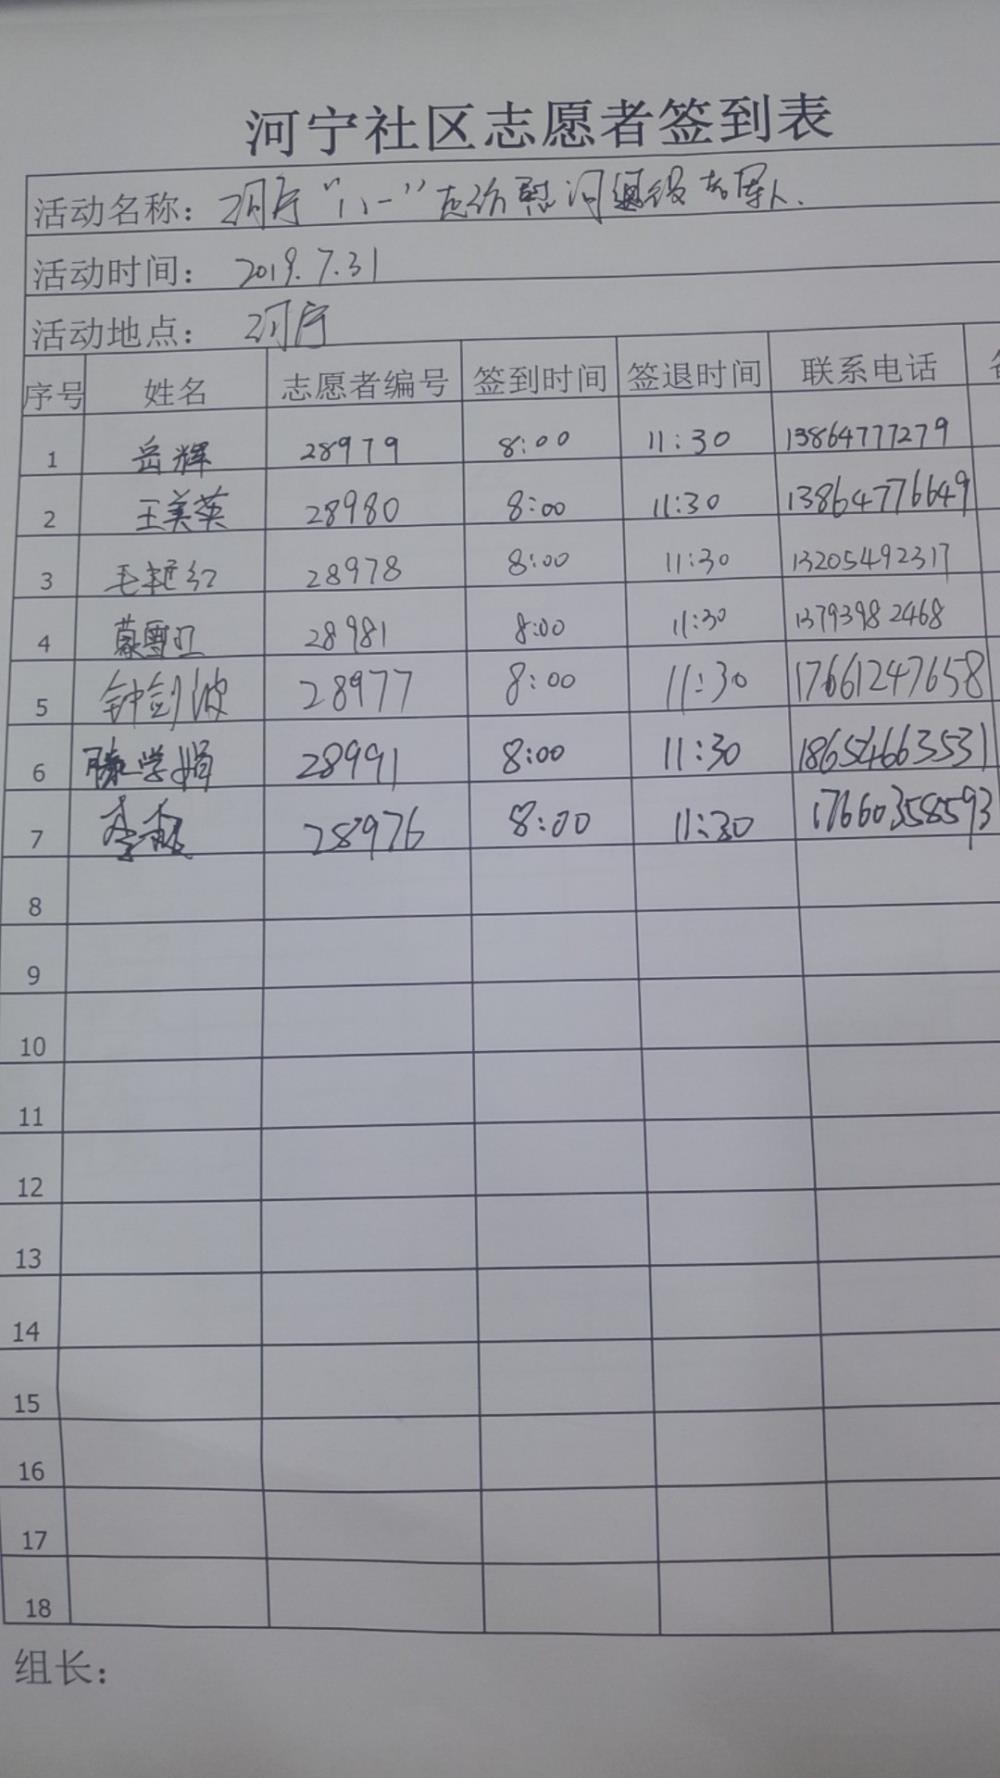 河宁社区志愿者签到表
活动名称：河宁“八一”走访慰问退役老军人.
活动时间：2019.7.31
活动地点：河宁
序号 姓名 志愿者编号 签到时间 签退时间 联系电话
1 岳辉 28979 8:00 11:30 13864777279
2 王美英 28980 8:00 11:30 13864776649
3 毛艳红 28978 8:00 11:30 13205492317
4 28981 8:00 11:30 13793982468
5 钟剑波 28977 8:00 11:30 17661247658
6 滕学娟 28991 8:00 11:30 18654663531
7 28976 8:00 11:30 17660358593
8
9
10
11
12
13
14
15
16
17
18
组长：